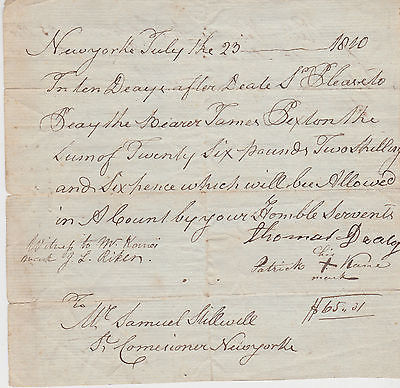 Newyorke July the 23 1810
In ten Deays after Deate Sr Please to
Peay the Bearer James Sexton the
Sum of Twenty Six pounds Two Shillings
and Sixpence which will be Allowed
in A Count by your Homble Servents
Thomas Dealy
Witness to Mr Kanes
mark J. L. Riker
his
Patrick + Kane
mark
To
Mr Samuel Stillwell
St Comesioner Newyorke
$65..31